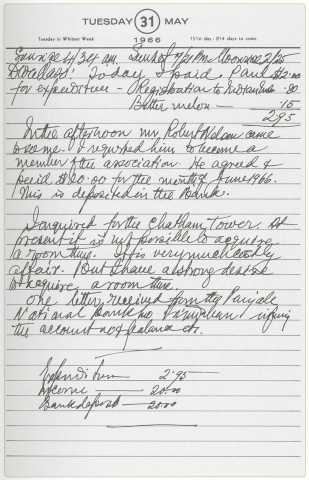 TUESDAY 31 MAY
Tuesday in Whitsun Week 1966 151st day - 214 days to come
Sunrise 4/34 am. Sunset 7/21 P.M. Moonrise 2/25
Today I paid Paul $2.00
for expenditure - Registration to .80
Bitter melon - .15
2.95
In the afternoon Mr. Robert Nelson came
to see me. I requested him to become a
member of the association. He agreed &
paid $20.00 for the month of June 1966.
This is deposited in the Bank.
I enquired for the Chatham Tower. At
present it is not possible to acquire
a room there. It is very much costly
affair. But I have a strong desire
to acquire a room there.
One letter received from the Punjab
National Bank
the account no & balance etc.
Expenditure 2.95
Income — 20.00
Bank deposit — 20.00